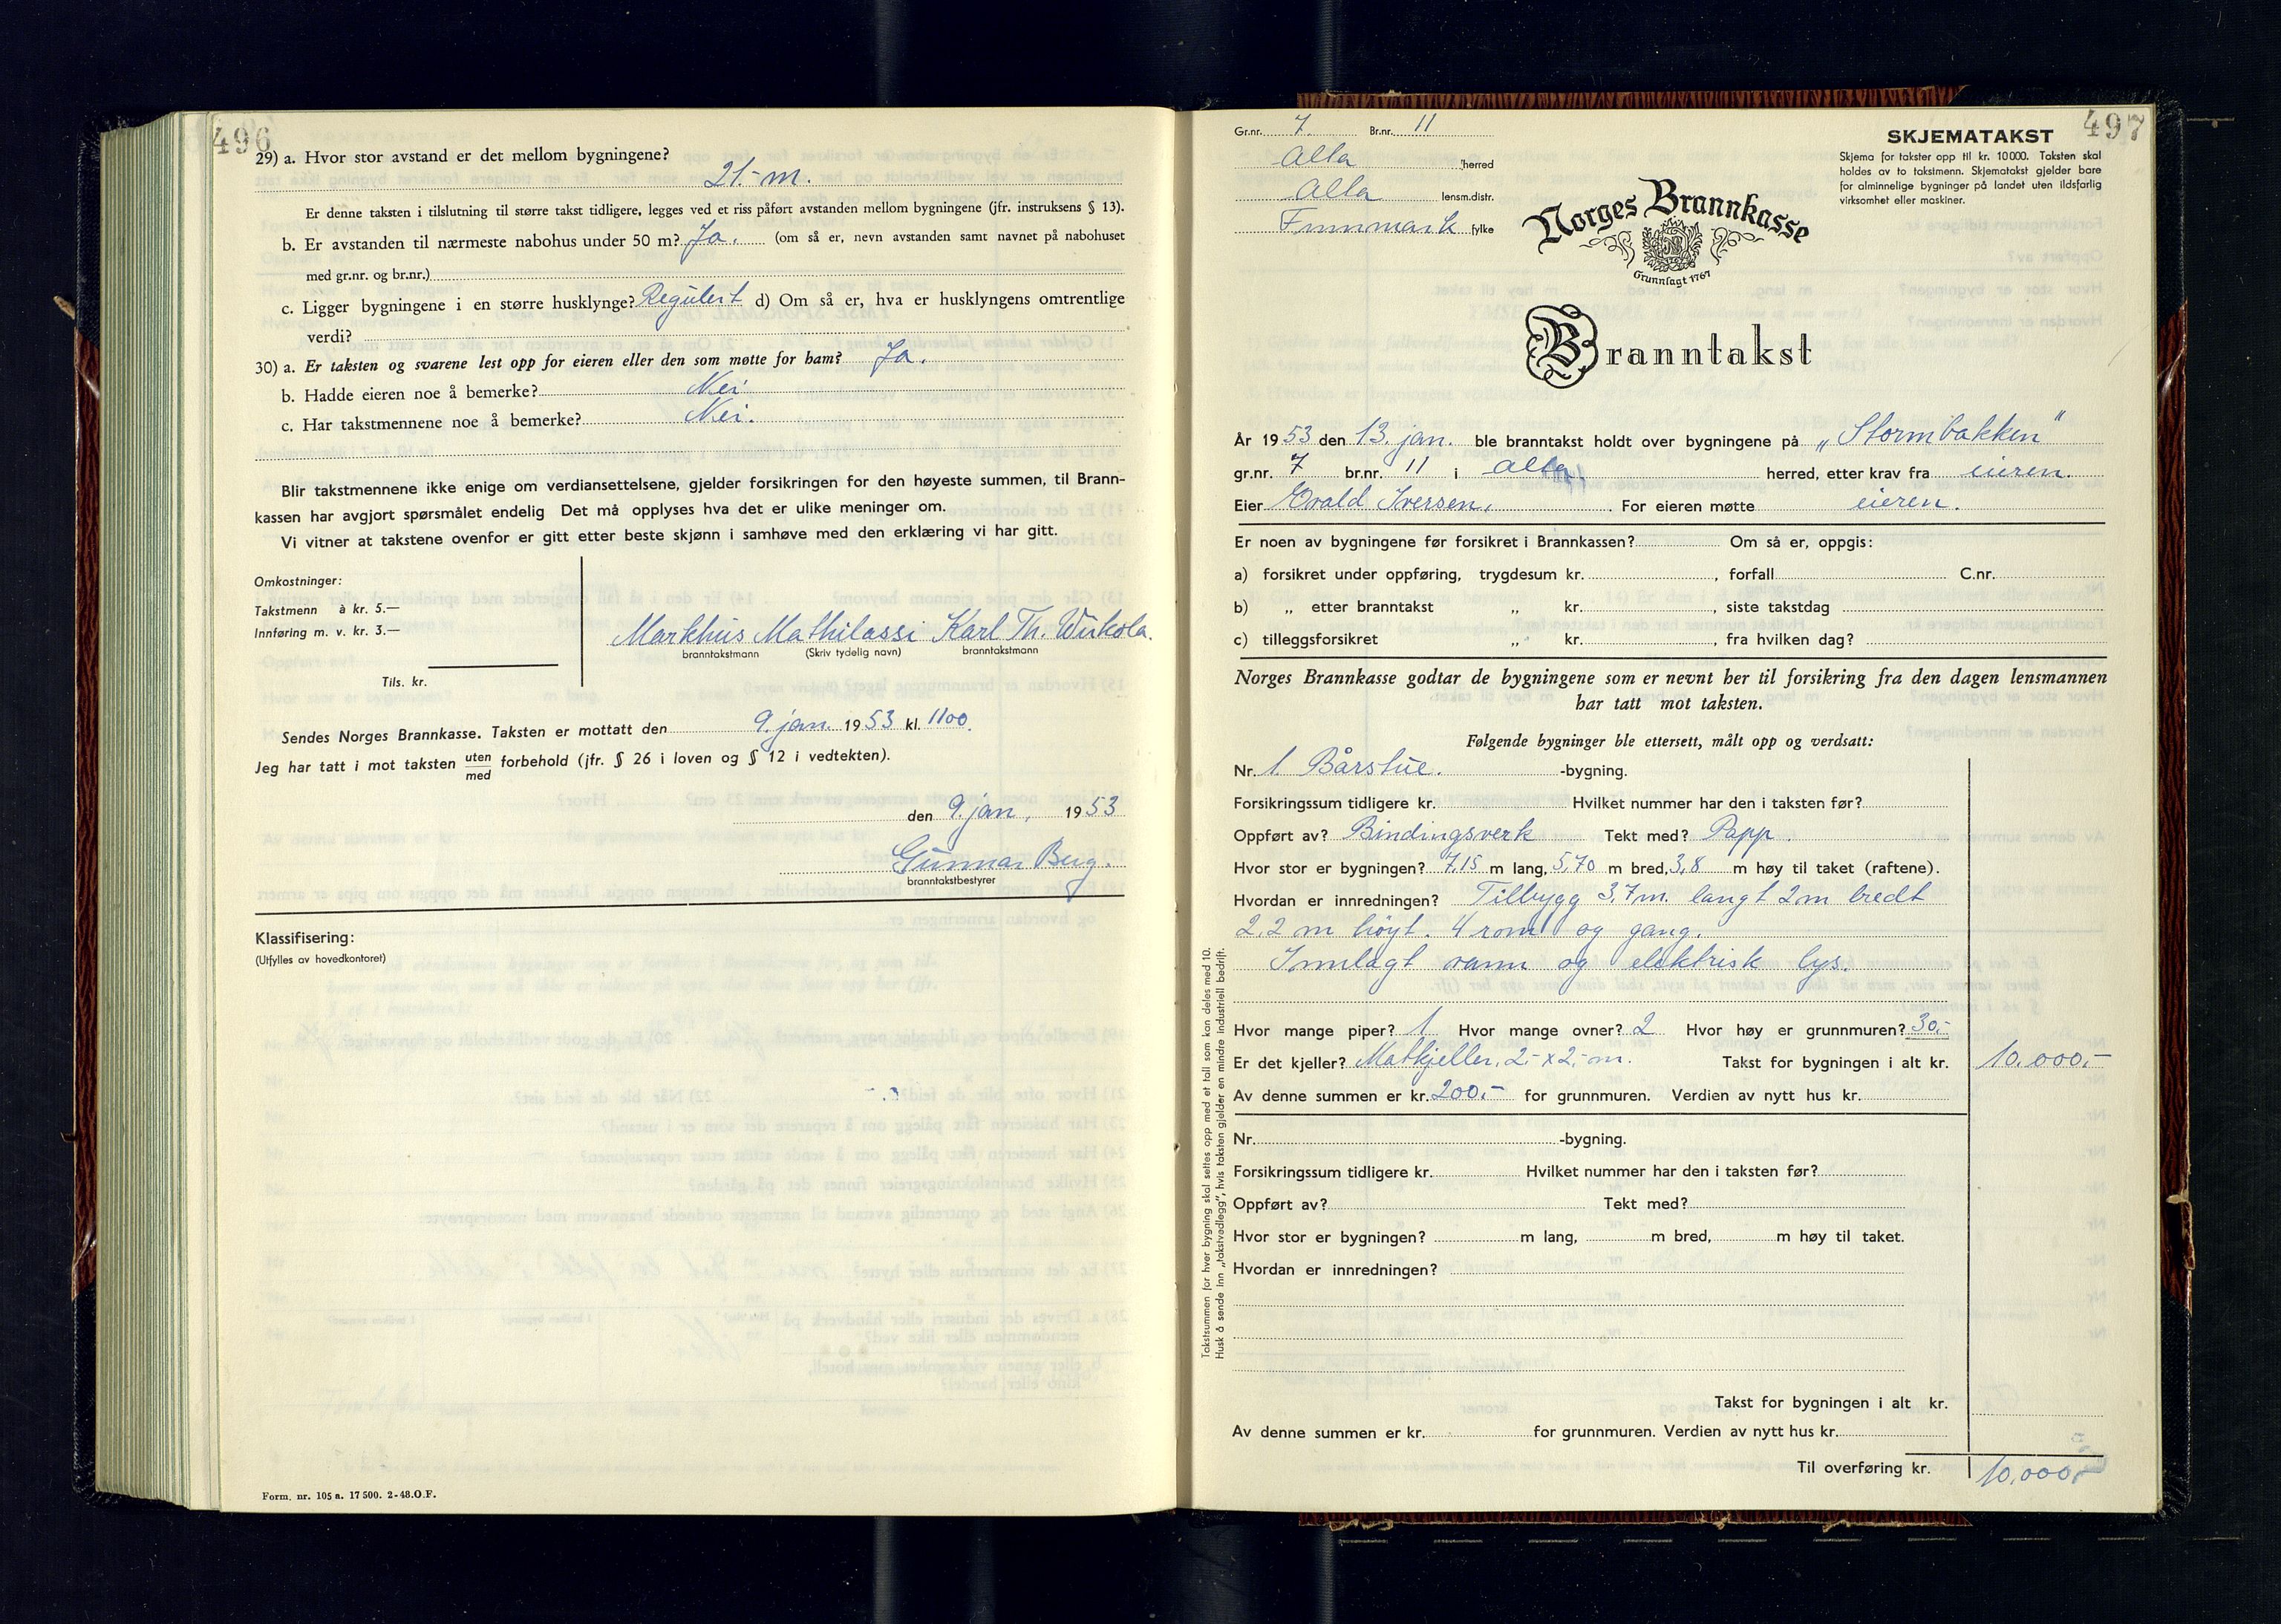 496
29) a. Hvor stor avstand er det mellom bygningene?
21.- m.
Er denne taksten i tilslutning til større takst tidligere, legges ved et riss påført avstanden mellom bygningene (jfr. instruksens § 13).
b. Er avstanden til nærmeste nabohus under 50 m? Ja. (om så er, nevn avstanden samt navnet på nabohuset
med gr.nr. og br.nr.)
c. Ligger bygningene i en større husklynge? Regulert d) Om så er, hva er husklyngens omtrentlige
verdi?
30) a. Er taksten og svarene lest opp for eieren eller den som møtte for ham? Ja.
b. Hadde eieren noe å bemerke? Nei
c. Har takstmennene noe å bemerke? Nei.
Blir takstmennene ikke enige om verdiansettelsene, gjelder forsikringen for den høyeste summen, til Brann-
kassen har avgjort spørsmålet endelig Det må opplyses hva det er ulike meninger om.
Vi vitner at takstene ovenfor er gitt etter beste skjønn i samhøve med den erklæring vi har gitt.
Omkostninger:
Takstmenn à kr. 5.—
Innføring m. v. kr. 3.—
Markhus Mathilassi Karl Th. Wirkola.
branntakstmann (Skriv tydelig navn) branntakstmann
Tils. kr.
Sendes Norges Brannkasse. Taksten er mottatt den 9. jan. 1953 kl. 1100.
Jeg har tatt i mot taksten uten
med forbehold (jfr. § 26 i loven og § 12 i vedtekten).
den 9. jan. 1953
Gunnar Berg.
branntakstbestyrer
Klassifisering:
(Utfylles av hovedkontoret)
Form. nr. 105 a. 17 500. 2-48. O.F.
497
Gr.nr. 7. Br.nr. 11
Alta herred
Alta lensm.distr.
Finnmark fylke
SKJEMATAKST
Skjema for takster opp til kr. 10 000. Taksten skal
holdes av to takstmenn. Skjematakst gjelder bare
for alminnelige bygninger på landet uten ildsfarlig
virksomhet eller maskiner.
Norges Brannkasse
Grunnlagt 1767
Branntakst
År 1953 den 13. jan. ble branntakst holdt over bygningene på „Stormbakken"
gr.nr. 7 br.nr. 11 i Alta herred, etter krav fra eieren.
Eier Evald Iversen. For eieren møtte eieren.
Er noen av bygningene før forsikret i Brannkassen? Om så er, oppgis:
a) forsikret under oppføring, trygdesum kr. , forfall C.nr.
b) „ etter branntakst „ kr. , siste takstdag
c) tilleggsforsikret „ kr. , fra hvilken dag?
Norges Brannkasse godtar de bygningene som er nevnt her til forsikring fra den dagen lensmannen
har tatt mot taksten.
Følgende bygninger ble ettersett, målt opp og verdsatt:
Nr. 1. Bårstue. -bygning.
Forsikringssum tidligere kr. Hvilket nummer har den i taksten før?
Oppført av? Bindingsverk Tekt med? Papp.
Hvor stor er bygningen? 7,15 m lang, 5,70 m bred, 3,8 m høy til taket (raftene).
Hvordan er innredningen? Tilbygg 3,7 m. langt 2 m bredt
2,2 m høyt. 4 rom og gang.
Innlagt vann og elektrisk lys.
Hvor mange piper? 1 Hvor mange ovner? 2 Hvor høy er grunnmuren? 30.-
Er det kjeller? Matkjeller. 2.- x 2.- m. Takst for bygningen i alt kr. 10.000.-
Av denne summen er kr. 200.- for grunnmuren. Verdien av nytt hus kr.
Nr. -bygning.
Forsikringssum tidligere kr. Hvilket nummer har den i taksten før?
Oppført av? Tekt med?
Hvor stor er bygningen? m lang, m bred, m høy til taket.
Hvordan er innredningen?
Takst for bygningen i alt kr.
Av denne summen er kr. for grunnmuren. Verdien av nytt hus kr.
Til overføring kr. 10.000.-
Takstsummen for hver bygning skal settes opp med et tall som kan deles med 10.
Husk å sende inn „takstvedlegg", hvis taksten gjelder en mindre industriell bedrift.